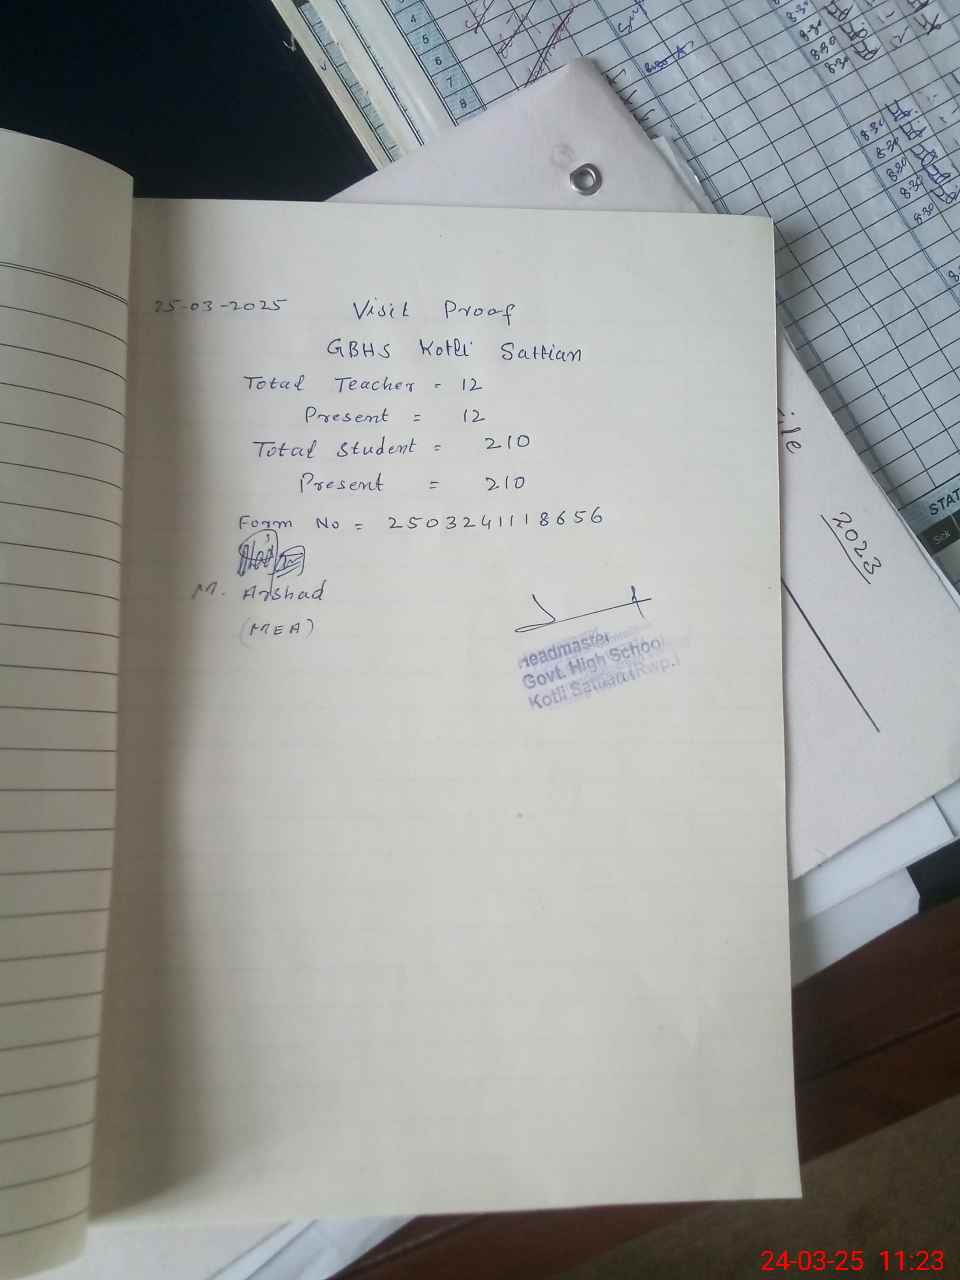 25-03-2025 Visit Proof
GBHS Kotli Sattian
Total Teacher = 12
Present = 12
Total Student = 210
Present = 210
Form No = 2503241118656
M. Arshad
(MEA)
Headmaster
Govt. High School
Kotli Sattian (Rwp.)
4
5
6
7
8
8:30
8:30
8:30
8:30
8:30
8:30
8:30
8:30
ile
2023
STAT
24-03-25 11:23